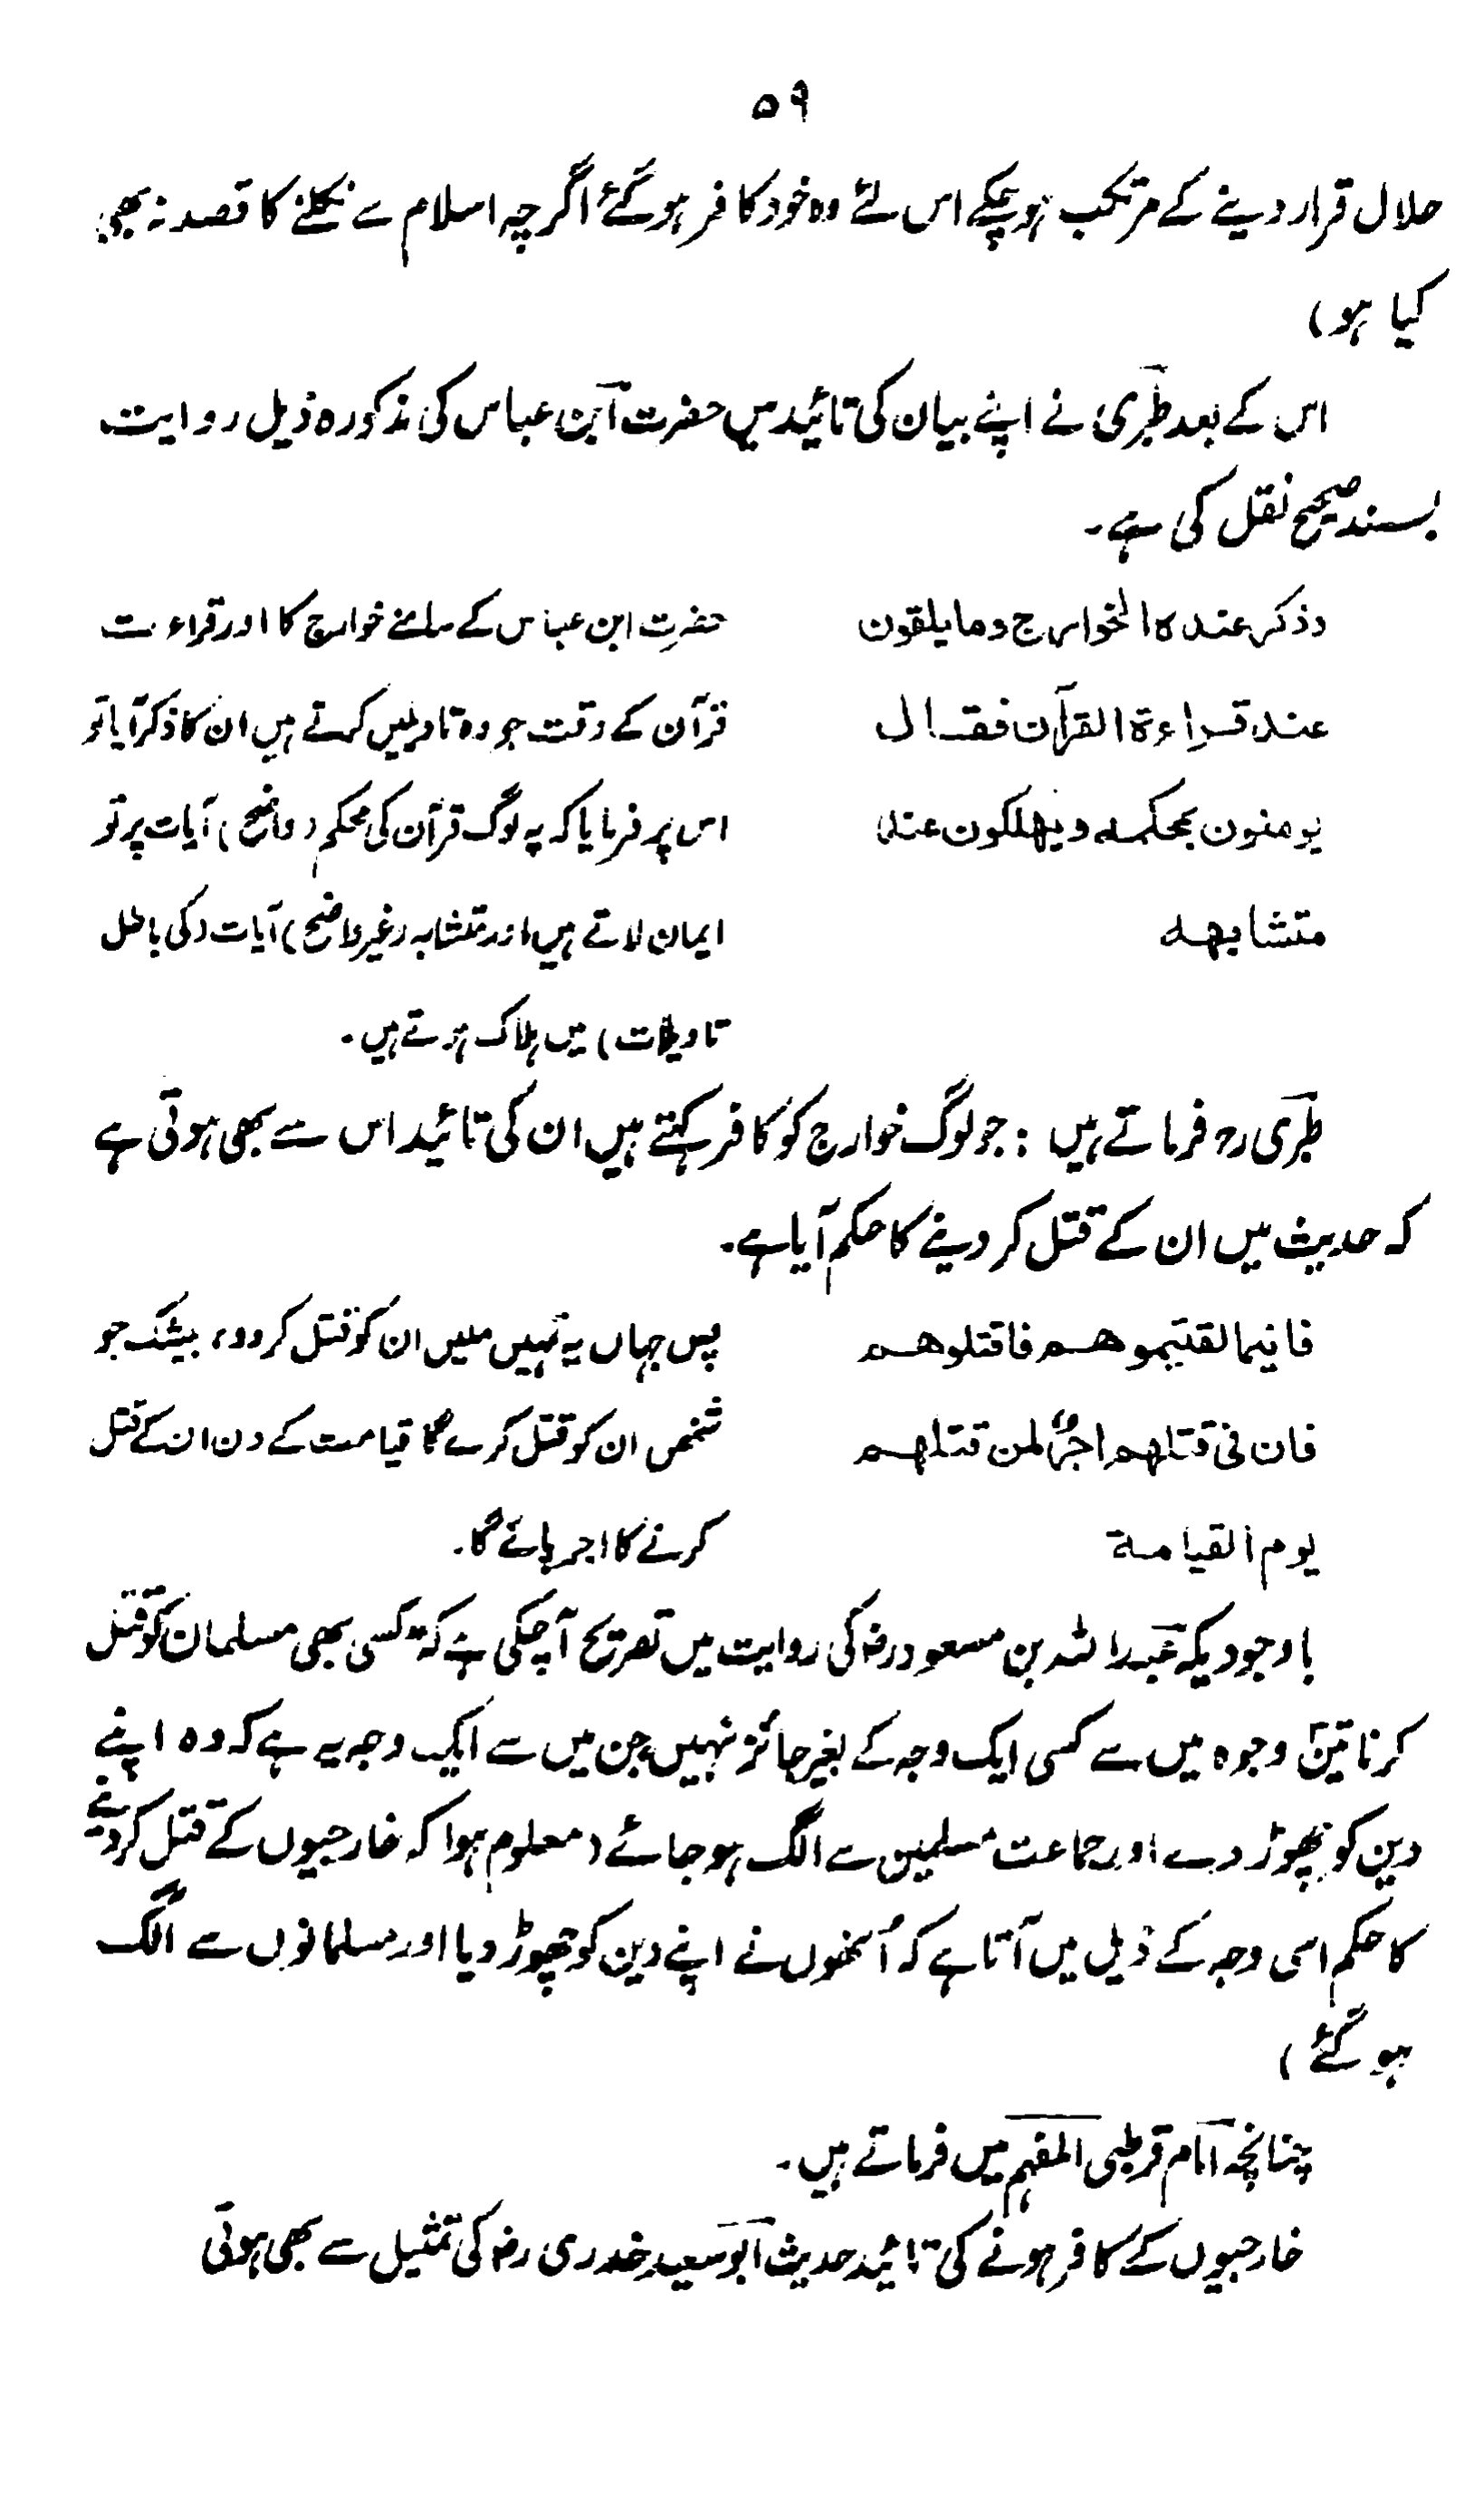 ۵۹
حلال قرار دینے کے مرتکب ہوچکے اس لئے وہ خود کافر ہوگئے اگرچہ اسلام سے نکلنے کا قصد نہ بھی
کیا ہو)
اس کے بعد طبری نے اپنے بیان کی تائید میں حضرت ابن عباس کی مذکورہ ذیل روایت
بسند صحیح نقل کی ہے۔
وذکر عندہ الخوارج وما یلقون
عند قراءۃ القرآن فقال
یومنون بمحکمہ ویھلکون عند
متشابھہ
حضرت ابن عباس کے سامنے خوارج کا اور قراءت
قرآن کے وقت جو وہ تاویلیں کرتے ہیں ان کا ذکر آیا تو
اس پر فرمایا کہ یہ لوگ قرآن کی محکم (واضح) آیات پر تو
ایمان لاتے ہیں اور متشابہ (غیر واضح) آیات (کی باطل
تاویلات) میں ہلاک ہوتے ہیں۔
طبری رہ فرماتے ہیں : جو لوگ خوارج کو کافر کہتے ہیں ان کی تائید اس سے بھی ہوتی ہے
کہ حدیث میں ان کے قتل کر دینے کا حکم آیا ہے۔
فاینما لقیتموھم فاقتلوھم
فان فی قتلھم اجرًا لمن قتلھم
یوم القیامۃ
پس جہاں یہ تمہیں ملیں ان کو قتل کر دو، بیشک جو
شخص ان کو قتل کرے گا قیامت کے دن ان کے قتل
کرنے کا اجر پائے گا۔
باوجودیکہ عبداللہ بن مسعود رضؓ کی روایت میں تصریح آچکی ہے کہ کسی بھی مسلمان کو قتل
کرنا تین وجوہ میں سے کسی ایک وجہ کے بغیر جائز نہیں، جن میں سے ایک وجہ یہ ہے کہ وہ اپنے
دین کو چھوڑ دے اور جماعت مسلمین سے الگ ہو جائے (معلوم ہوا کہ خارجیوں کے قتل کر دینے
کا حکم اسی وجہ کے ذیل میں آتا ہے کہ اُنھوں نے اپنے دین کو چھوڑ دیا اور مسلمانوں سے الگ
ہو گئے)
چنانچہ امام قرطبی المفہم میں فرماتے ہیں۔
خارجیوں کے کافر ہونے کی تائید حدیث ابو سعید خدری رضؓ کی تمثیل سے بھی ہوتی